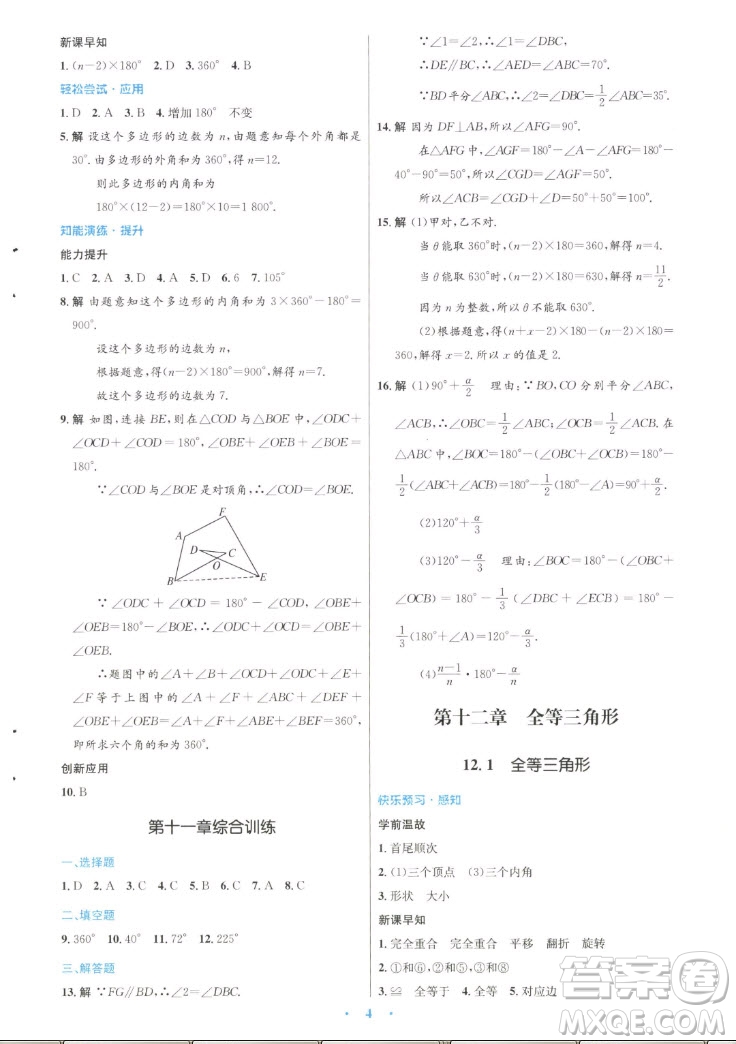 新课早知
1. (n-2)×180°  2. D  3. 360°  4. B
轻松尝试·应用
1. D  2. A  3. B  4. 增加180°  不变
5. 解  设这个多边形的边数为n,由题意知每个外角都是
30°. 由多边形的外角和为360°,得n=12.
则此多边形的内角和为
180°×(12-2)=180°×10=1 800°.
知能演练·提升
能力提升
1. C  2. A  3. D  4. A  5. D  6. 6  7. 105°
8. 解  由题意知这个多边形的内角和为3×360°-180°=
900°.
设这个多边形的边数为n,
根据题意,得(n-2)×180=900,解得n=7.
故这个多边形的边数为7.
9. 解  如图,连接BE,则在△COD与△BOE中,∠ODC+
∠OCD+∠COD=180°,∠OBE+∠OEB+∠BOE=
180°.
∵∠COD与∠BOE是对顶角,∴∠COD=∠BOE.
F
A
D
C
O
B
E
∵∠ODC+∠OCD=180°-∠COD,∠OBE+
∠OEB=180°-∠BOE,∴∠ODC+∠OCD=∠OBE+
∠OEB.
∴题图中的∠A+∠B+∠OCD+∠ODC+∠E+
∠F等于上图中的∠A+∠F+∠ABC+∠DEF+
∠OBE+∠OEB=∠A+∠F+∠ABE+∠BEF=360°,
即所求六个角的和为360°.
创新应用
10. B
第十一章综合训练
一、选择题
1. D  2. A  3. C  4. C  5. B  6. A  7. A  8. C
二、填空题
9. 360°  10. 40°  11. 72°  12. 225°
三、解答题
13. 解  ∵FG∥BD,∴∠2=∠DBC.
∵∠1=∠2,∴∠1=∠DBC,
∴DE∥BC,∴∠AED=∠ABC=70°.
∵BD平分∠ABC,∴∠2=∠DBC=1/2∠ABC=35°.
14. 解  因为DF⊥AB,所以∠AFG=90°.
在△AFG中,∠AGF=180°-∠A-∠AFG=180°-
40°-90°=50°,所以∠CGD=∠AGF=50°.
所以∠ACB=∠CGD+∠D=50°+50°=100°.
15. 解  (1)甲对,乙不对.
当θ能取360°时,(n-2)×180=360,解得n=4.
当θ能取630°时,(n-2)×180=630,解得n=11/2.
因为n为整数,所以θ不能取630°.
(2)根据题意,得(n+x-2)×180-(n-2)×180=
360,解得x=2.所以x的值是2.
16. 解  (1)90°+α/2  理由:∵BO,CO分别平分∠ABC,
∠ACB,∴∠OBC=1/2∠ABC;∠OCB=1/2∠ACB.在
△ABC中,∠BOC=180°-∠OBC-∠OCB=180°-
1/2(∠ABC+∠ACB)=180°-1/2(180°-∠A)=90°+α/2.
(2)120°+α/3
(3)120°-α/3  理由:∠BOC=180°-(∠OBC+
∠OCB)=180°-1/3(∠DBC+∠ECB)=180°-
1/3(180°+∠A)=120°-α/3.
(4)(n-1)/n·180°-α/n
第十二章  全等三角形
12.1  全等三角形
快乐预习·感知
学前温故
1. 首尾顺次
2. (1)三个顶点  (3)三个内角
3. 形状  大小
新课早知
1. 完全重合  完全重合  平移  翻折  旋转
2. ①和⑥  ②和⑤  ③和⑧
3. ≌  全等于  4. 完全重合  5. 对应边
4
答案卷
MXQE.COM